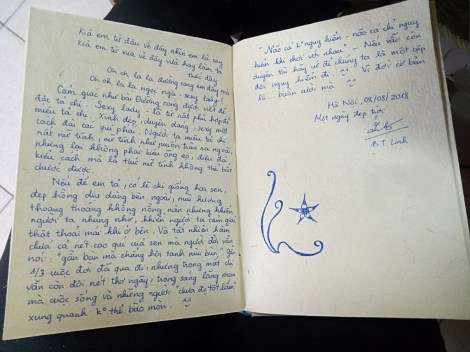 Kìa em từ đâu về đây nhìn em là say
Kìa em từ xưa về đây nửa hay hôm ta
thức đây
Oh oh la la đường cong em đầy mà
Oh oh la la ngọc ngà - sexy baby!
Cảm giác như bài Đường cong được viết để
đặc tả chị. Sexy lady - là từ rất phù hợp để
miêu tả chị. Xinh đẹp, duyên dáng, sexy một
cách đài các quí phái. Người ta miêu tả chị
rất nữ tính, nữ tính như muôn trào sa ngã,
nhưng lại không phải kiểu ỏng ẹo, điệu đà
kiểu cách mà là thứ nữ tính không thể bắt
chước được.
Nếu để em tả, có lẽ chị giống hoa sen,
đẹp không dịu dàng bên ngoài, mùi hương
thoang thoảng không nồng nàn nhưng khiến
người ta nhung nhớ, khiến người ta cảm giác
thật thoải mái khi ở bên. Và tất nhiên hàm
chứa cả nét cao quí của sen mà người đời vẫn
nói: "gần bùn mà chẳng hôi tanh mùi bùn", gần
1/3 cuộc đời đã qua đi, nhưng trong mắt chị
vẫn còn đôi nét thơ ngây, trong sáng lãng mạn
mà cuộc sống và những người chưa đủ tốt lắm
xung quanh k° thể bào mòn.
"Não cá k° nguy hiểm - não cá chỉ nguy
hiểm khi chơi với nhau" - Nếu vẫn còn
duyên thì hãy cứ để chúng ta là một cặp
đôi nguy hiểm đi. Vì đời cơ bản
là... buồn cười mà
Hà Nội, 08/03/2018
Một ngày đẹp trời
B.T. Linh